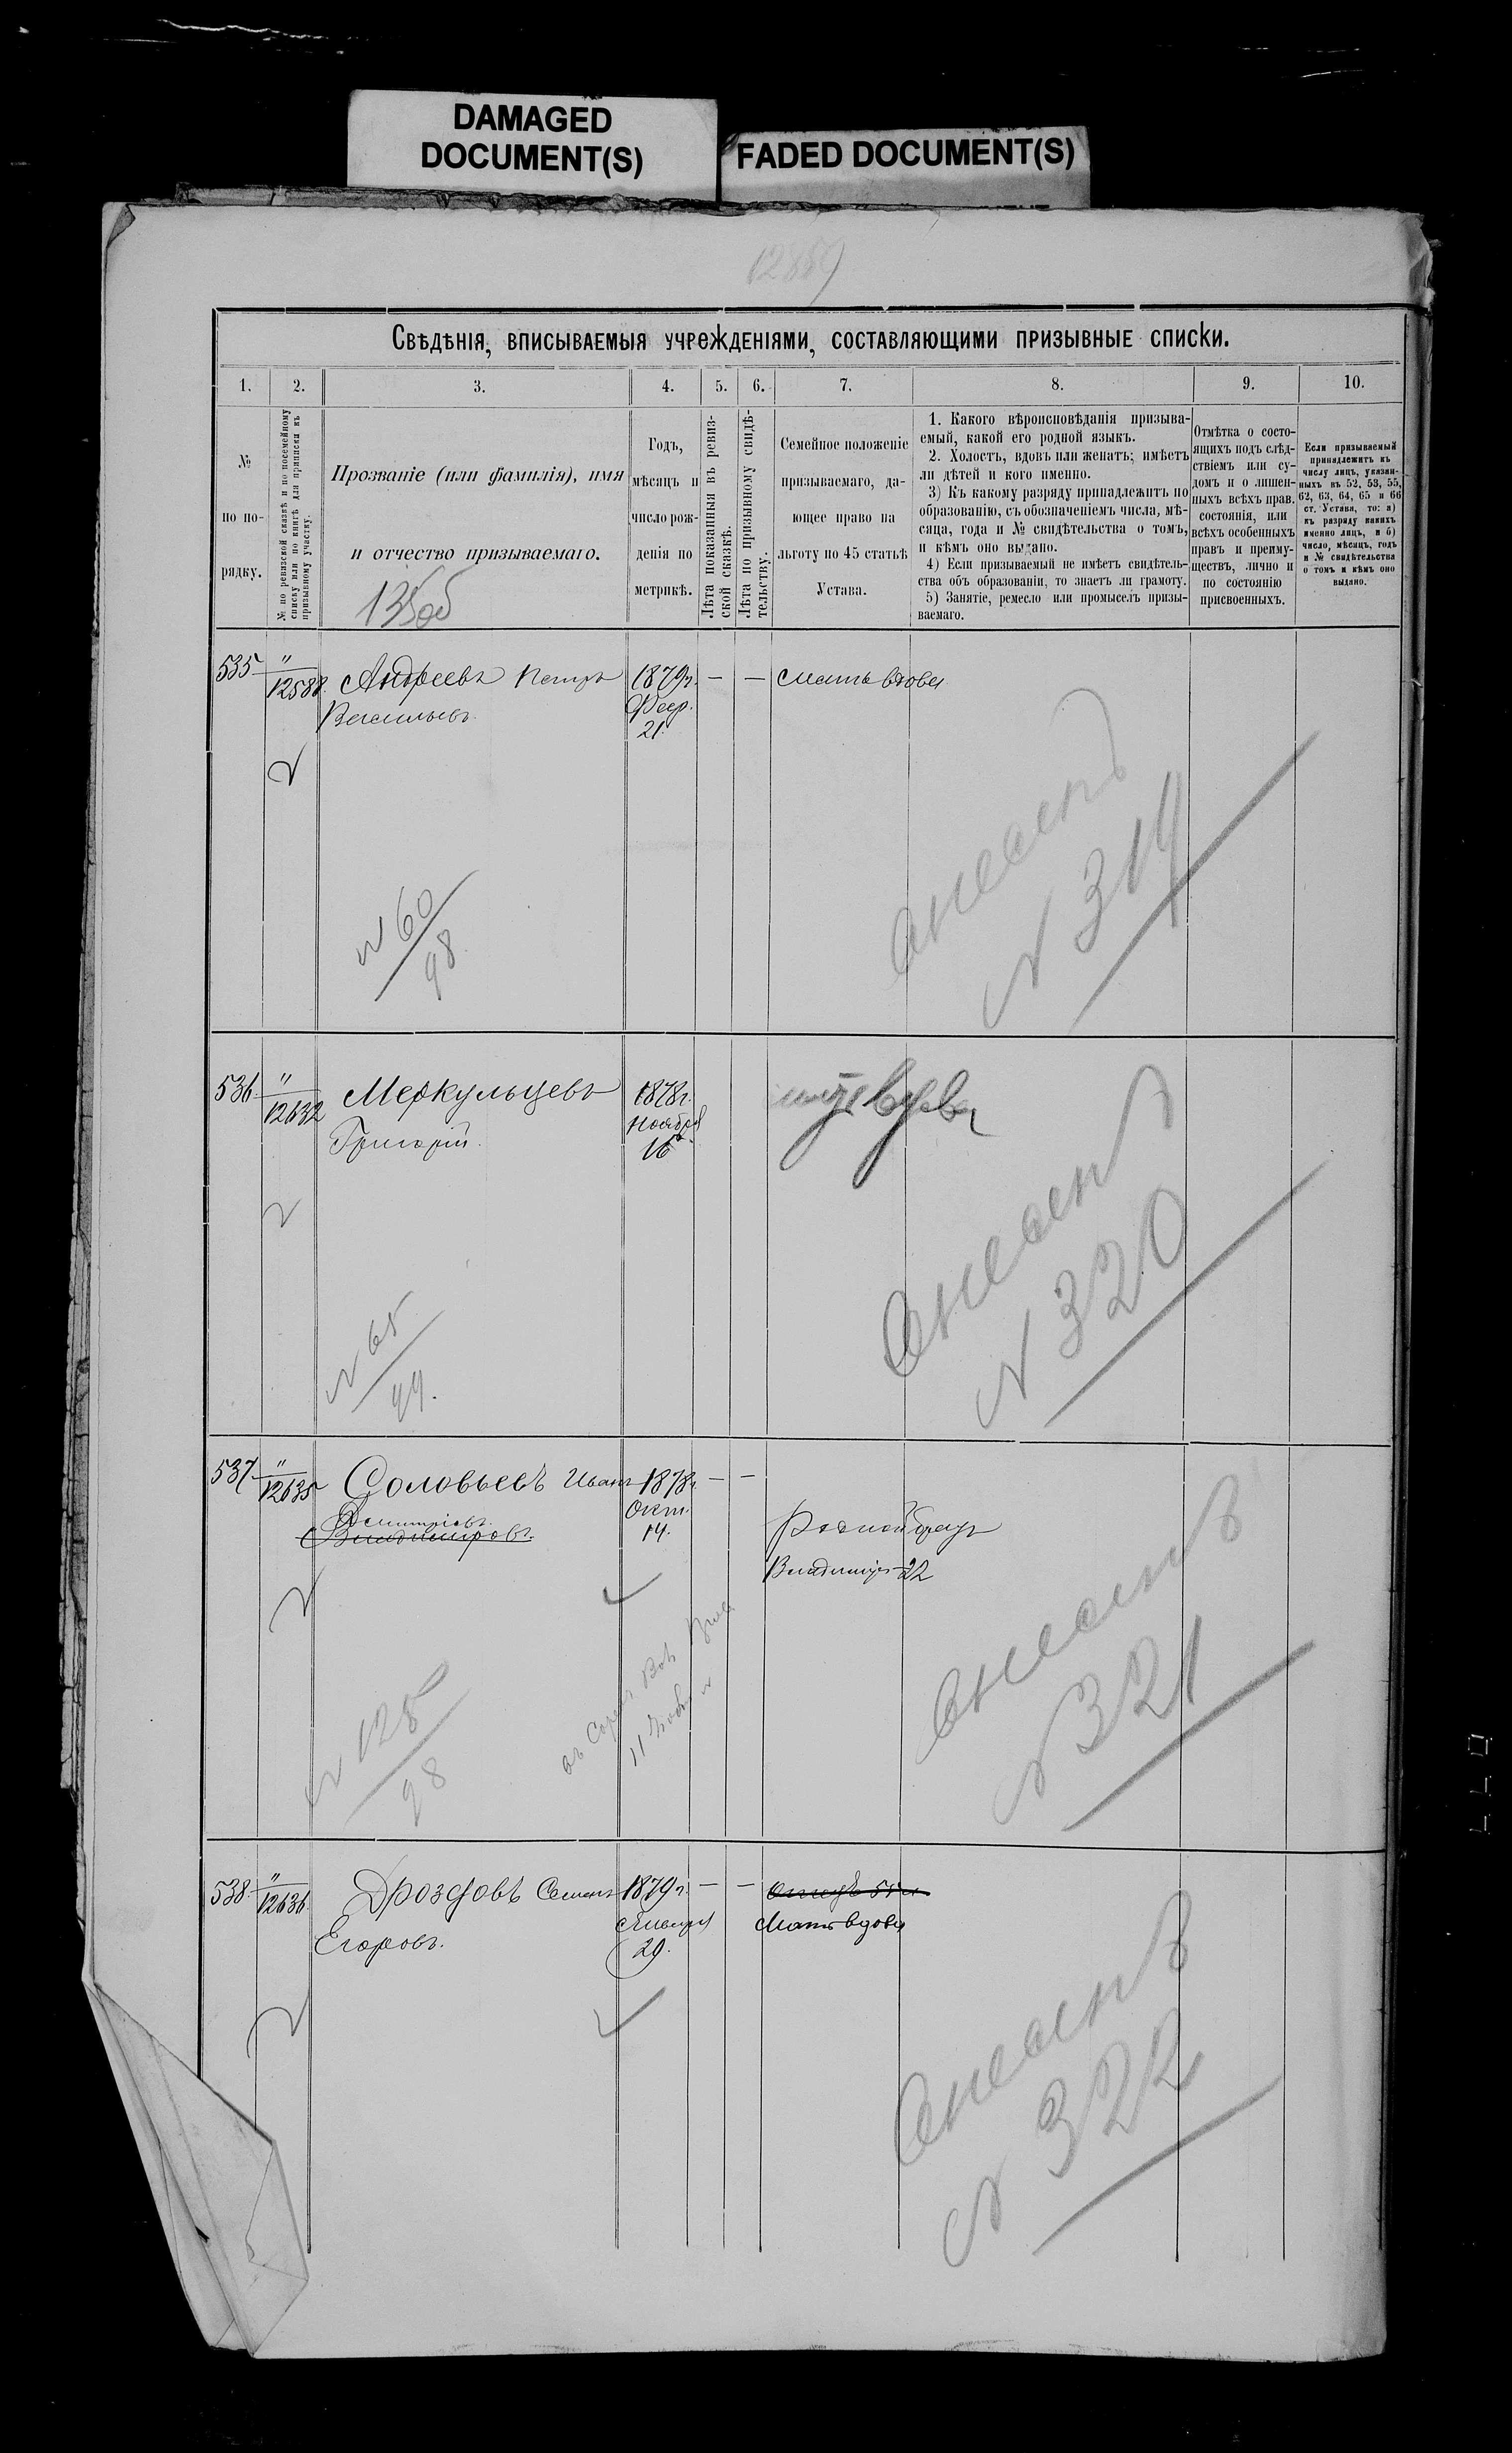 DAMAGED
DOCUMENT(S)
FADED DOCUMENT(S)
12859
Свѣдѣнія, вписываемыя учрежденіями, составляющими призывные списки.
1. 2. 3. 4. 5. 6. 7. 8. 9. 10.
№
по по-
рядку.
№ по ревизской сказкѣ и по посемейному
списку или по книгѣ для приписки къ
призывному участку.
Прозваніе (или фамилія), имя
и отчество призываемаго.
Годъ,
мѣсяцъ и
число рож-
денія по
метрикѣ.
Лѣта показанныя въ ревиз-
ской сказкѣ.
Лѣта по призывному свидѣ-
тельству.
Семейное положеніе
призываемаго, да-
ющее право на
льготу по 45 статьѣ
Устава.
1. Какого вѣроисповѣданія призыва-
емый, какой его родной языкъ.
2. Холостъ, вдовъ или женатъ; имѣетъ
ли дѣтей и кого именно.
3) Къ какому разряду принадлежитъ по
образованію, съ обозначеніемъ числа, мѣ-
сяца, года и № свидѣтельства о томъ,
и кѣмъ оно выдано.
4) Если призываемый не имѣетъ свидѣтель-
ства объ образованіи, то знаетъ ли грамоту.
5) Занятіе, ремесло или промыселъ призы-
ваемаго.
Отмѣтка о состо-
ящихъ подъ слѣд-
ствіемъ или су-
домъ и о лишен-
ныхъ всѣхъ прав.
состоянія, или
всѣхъ особенныхъ
правъ и преиму-
ществъ, лично и
по состоянію
присвоенныхъ.
Если призываемый
принадлежитъ къ
числу лицъ, указан-
ныхъ въ 52, 53, 55,
62, 63, 64, 65 и 66
ст. Устава, то: а)
къ разряду какихъ
именно лицъ, и б)
число, мѣсяцъ, годъ
и № свидѣтельства
о томъ и кѣмъ оно
выдано.
535 " 12588. Андреевъ Петръ 1879г. — — Мать вдова
Васильевъ. Февр.
21.
N 60
98
Внесенъ
N 319
536 " 12632 Меркульцевъ 1878г. вдова
Григорій. Ноября
16
N 65
99.
Внесенъ
N 320
537 " 12635 Соловьевъ Иванъ 1878г. — —
Димитріевъ. Окт.
Владиміровъ. 14.
Родной братъ
Владиміръ 22
N 128
98
Внесенъ
N 321
538. " 12636. Дроздовъ Семенъ 1879г. — — Отецъ
Егоровъ. Января Мать вдова
29.
Внесенъ
N 322